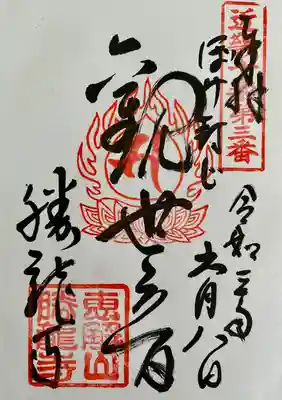 奉拝
近畿十楽第三番
ぼけ封じ
令和三年
六月八日
六観世音
勝龍寺
恵解山
勝龍寺